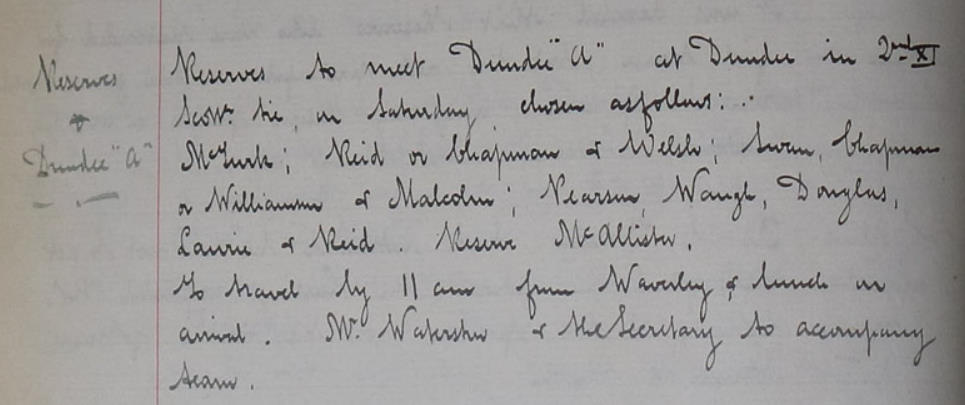 Reserves
&
Dundee "A"
Reserves to meet Dundee "A" at Dundee in 2nd XI
Scott. tie, on Saturday chosen as follows: -
McTurk; Reid or Chapman & Welsh; Swan, Chapman
or Williamson & Malcolm; Pearson, Waugh, Douglas,
Laurie & Reid. Reserve McAllister.
To travel by 11 am from Waverley & lunch on
arrival. Mr. Waterston & the Secretary to accompany
team.